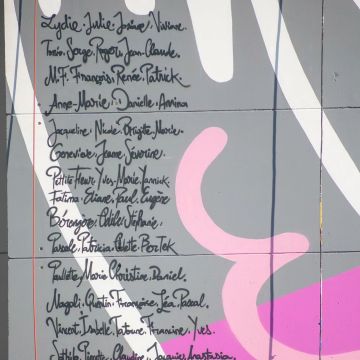 Lydie. Julie. Josiane. Viviane.
Serge. Roger. Jean-Claude.
M.F. François. Renée. Patrick.
Anne-Marie. Danielle. Annina
Jacqueline. Nicole. Brigitte. Marie.
Geneviève. Jeanne. Séverine.
Petite Fleur. Yves-Marie. Yannick.
Fatima. Eliane. Paul. Eugène
Bérengère. Odile. Stéphanie.
Pascale. Patricia. Odette
Paulette. Marie Christine. Daniel.
Magali. Quentin. Françoise. Léa. Pascal.
Vincent. Isabelle. Francine. Yves.
Claudine. Jacques. Anastasia.